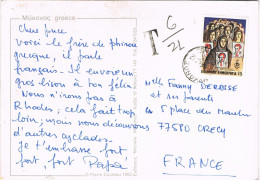 Μύκονος greece
Chère puce
voici le frère de
grecque, il parle
français. Il enverra un
gros bisou à ton félin.
Nous n'irons pas à
Rhodes; cela fait trop
loin, mais nous découvrons
d'autres cyclades.
Je t'embrasse fort
fort, fort, fort Papa
T 6/21
Melle Fanny
et ses parents
5 place du Marché
77580 CRECY
FRANCE